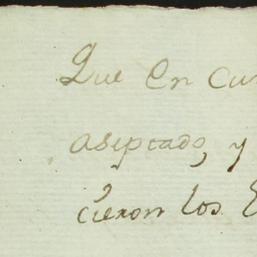 Que en cu
aseptado, y
cieron los E